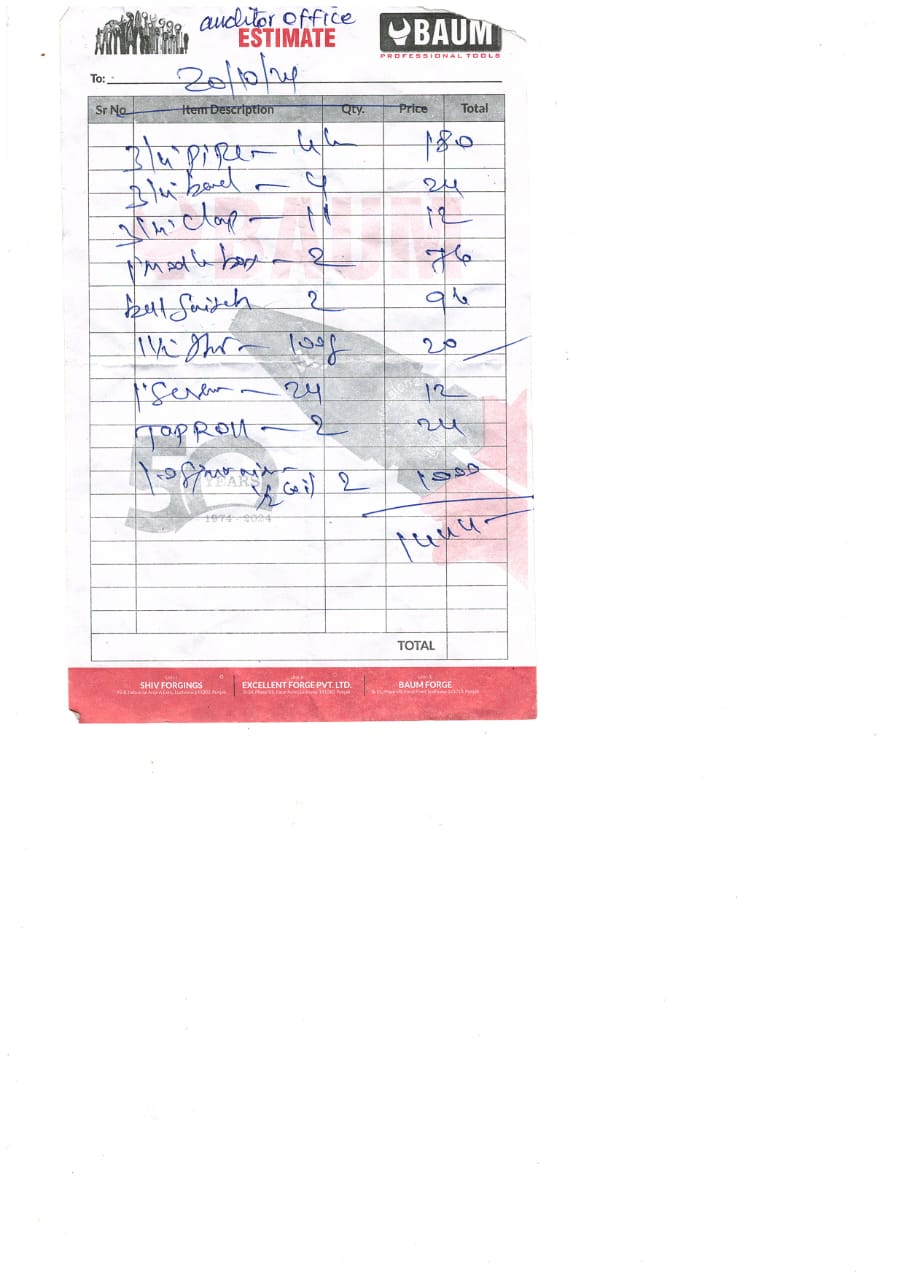 auditor office
ESTIMATE
BAUM
PROFESSIONAL TOOLS
To: 20/10/24
Sr No Item Description Qty. Price Total
3/4" PIPE - 180
3/4" bend - 4 24
3/4" Clap - 11 12
1 box - 2 76
bell Switch 2 96
1 1/2 - 100g 20
1" Screw - 24 12
Tap Roll - 2 24
1.0 1/2 Coil 2 1000
1444
BAUM
50 YEARS
1974 - 2024
TOTAL
SHIV FORGINGS EXCELLENT FORGE PVT. LTD. BAUM FORGE